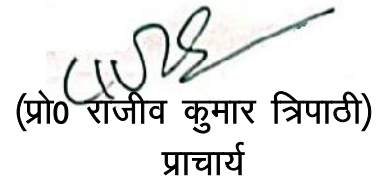 (प्रो0 राजीव कुमार त्रिपाठी)
प्राचार्य